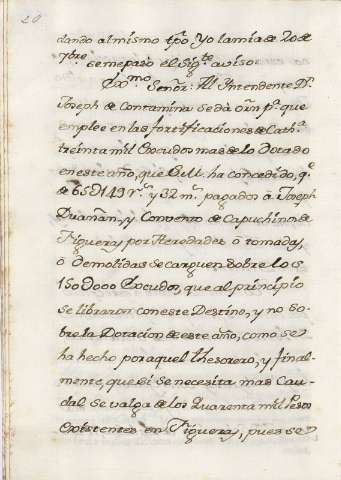 20
dando al mismo tpõ. Yo la mia de 20 de
7bre se me pasó el sigte aviso
Exmo Señor: Al Intendente Dn
Joseph de Contamina se dá orñ pa que
emplee en las fortificaciones de Catha
treinta mil Escudos mas de lo Dotado
en este año, que S.M. ha concedido, qe
de 65d149 rs y 32 ms pagados á Joseph
Duañan, y Convento de Capuchinos, de
Figueras por Heredades ó tomadas,
ó demolidas se carguen sobre los
150d000 Escudos, que al principio
se libraron con este Destino, y no so-
bre la Dotacion de este año, como se
ha hecho por aquel thesorero, y final-
mente, que si se necesita mas Cau-
dal se valga de los Quarenta mil Pesos
existentes en Figueras, pues se